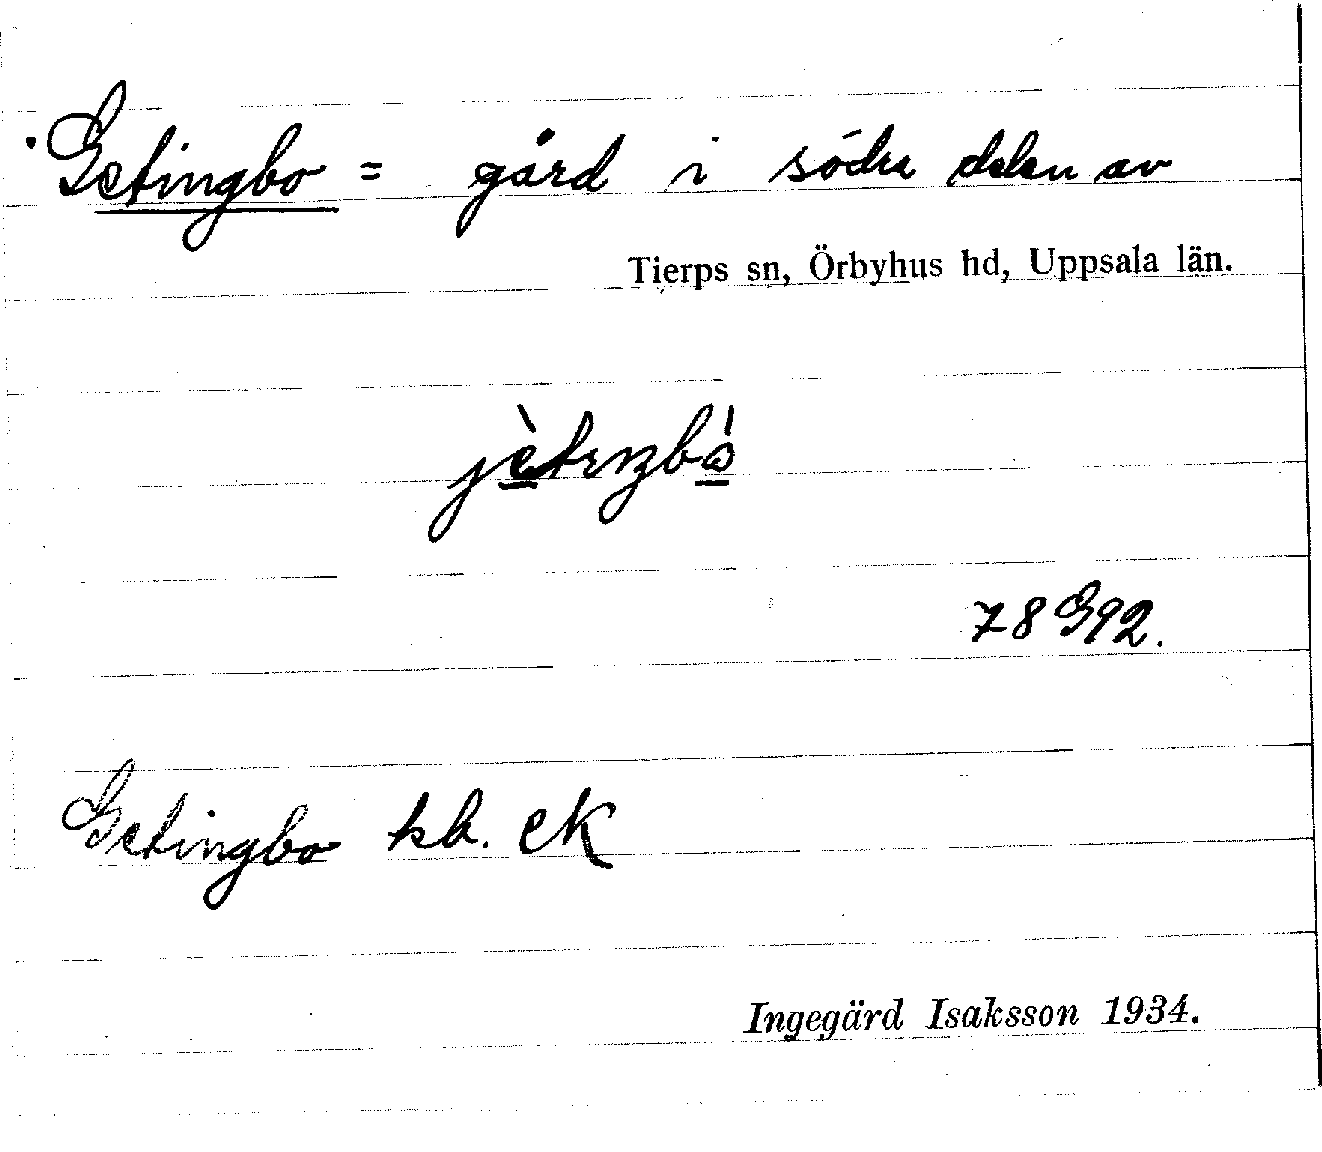 Getingbo = gård i södra delen av
Tierps sn, Örbyhus hd, Uppsala län.
jètɩŋbó
78 G92.
Getingbo kb. EK
Ingegärd Isaksson 1934.